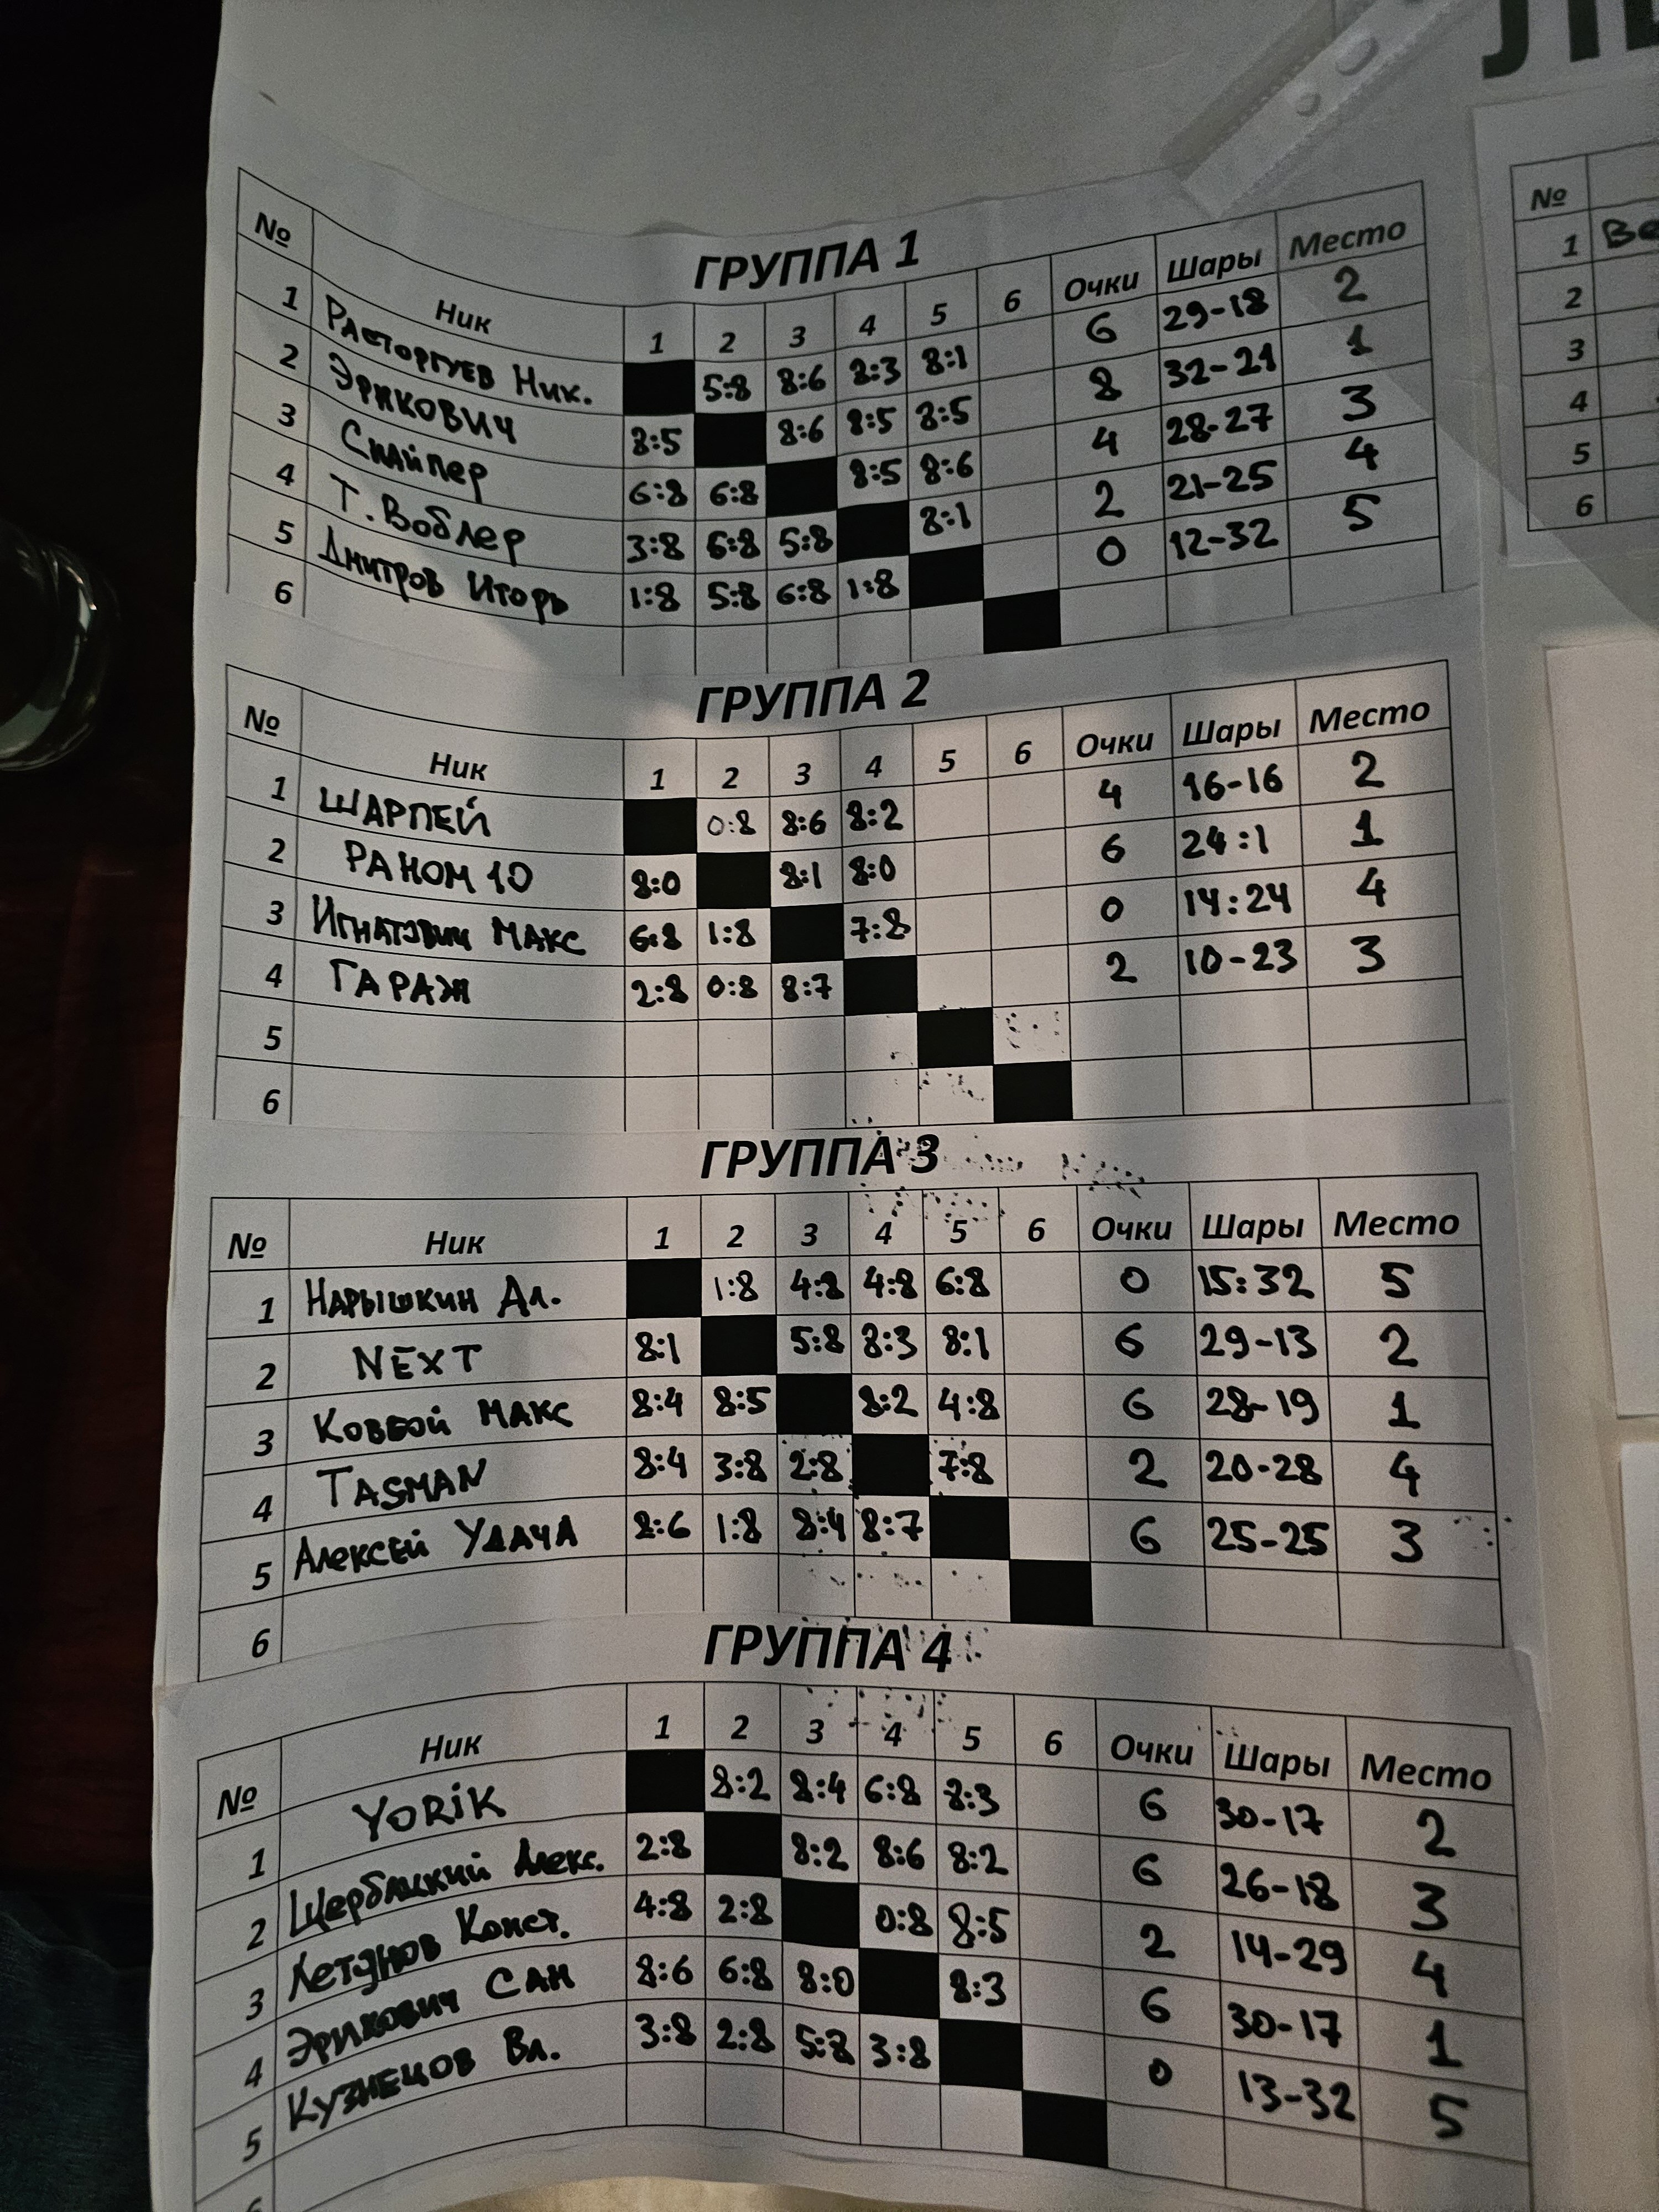 ЛЕ
ГРУППА 1
№ Ник 1 2 3 4 5 6 Очки Шары Место
1 Расторгуев Ник. 5:8 8:6 8:3 8:1 6 29-18 2
2 Эрикович 8:5 8:6 8:5 8:5 8 32-21 1
3 Снайпер 6:8 6:8 8:5 8:6 4 28-27 3
4 Т. Воблер 3:8 5:8 5:8 8:1 2 21-25 4
5 Дмитров Игорь 1:8 5:8 6:8 1:8 0 12-32 5
6
ГРУППА 2
№ Ник 1 2 3 4 5 6 Очки Шары Место
1 ШАРПЕЙ 0:8 8:6 8:2 4 16-16 2
2 РАНОМ 10 8:0 8:1 8:0 6 24:1 1
3 Игнатович МАКС 6:8 1:8 7:8 0 14:24 4
4 ГАРАЖ 2:8 0:8 8:7 2 10-23 3
5
6
ГРУППА 3
№ Ник 1 2 3 4 5 6 Очки Шары Место
1 Нарышкин Ал. 1:8 4:8 4:8 6:8 0 15:32 5
2 NEXT 8:1 5:8 8:3 8:1 6 29-13 2
3 Ковбой МАКС 8:4 8:5 8:2 4:8 6 28-19 1
4 TASMAN 8:4 3:8 2:8 7:8 2 20-28 4
5 Алексей УДАЧА 8:6 1:8 8:4 8:7 6 25-25 3
6
ГРУППА 4
№ Ник 1 2 3 4 5 6 Очки Шары Место
1 YORiK 8:2 8:4 6:8 8:3 6 30-17 2
2 Щербацкий Алекс. 2:8 8:2 8:6 8:2 6 26-18 3
3 Летунов Конст. 4:8 2:8 0:8 8:5 2 14-29 4
4 Эрикович САН 8:6 6:8 8:0 8:3 6 30-17 1
5 Кузнецов Вл. 3:8 2:8 5:8 3:8 0 13-32 5
6
№
1 Ве
2
3
4
5
6